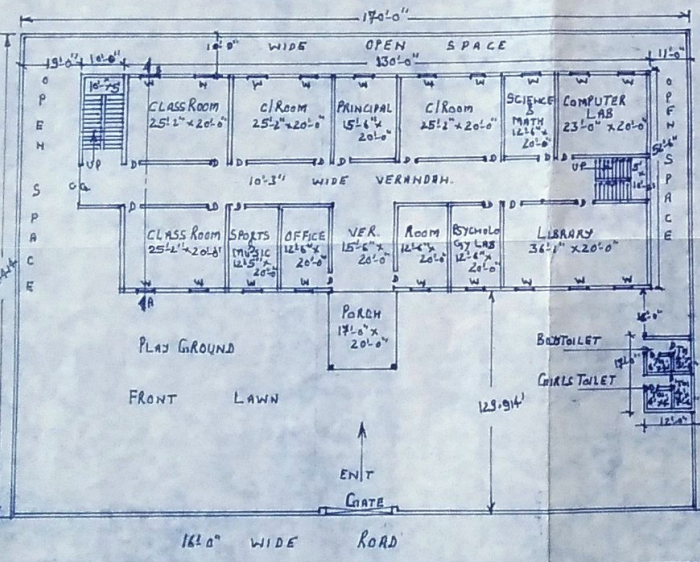 170'-0"
10'-0" WIDE OPEN SPACE
130'-0"
11'-0"
OPEN SPACE
OPEN SPACE
UP
CLASS ROOM
25'-2" x 20'-0"
C/ROOM
25'-2" x 20'-0"
PRINCIPAL
15'-6" x
20'-0"
C/ROOM
25'-2" x 20'-0"
SCIENCE
&
MATH
12'-6" x
20'-0"
COMPUTER
LAB
23'-0" x 20'-0"
UP
10'-3" WIDE VERANDAH.
CLASS ROOM
25'-2" x 20'-0"
SPORTS
&
MUSIC
12'-5" x
20'-0"
OFFICE
12'-6" x
20'-0"
VER.
15'-6" x
20'-0"
ROOM
12'-6" x
20'-0"
PSYCHOLO
GY LAB
12'-6" x
20'-0"
LIBRARY
36'-1" x 20'-0"
A
PORCH
17'-0" x
20'-0"
PLAY GROUND
FRONT LAWN
129.914'
BOYTOILET
17'-0"
GIRLS TOILET
12'-0"
ENT
GATE
16'-0" WIDE ROAD